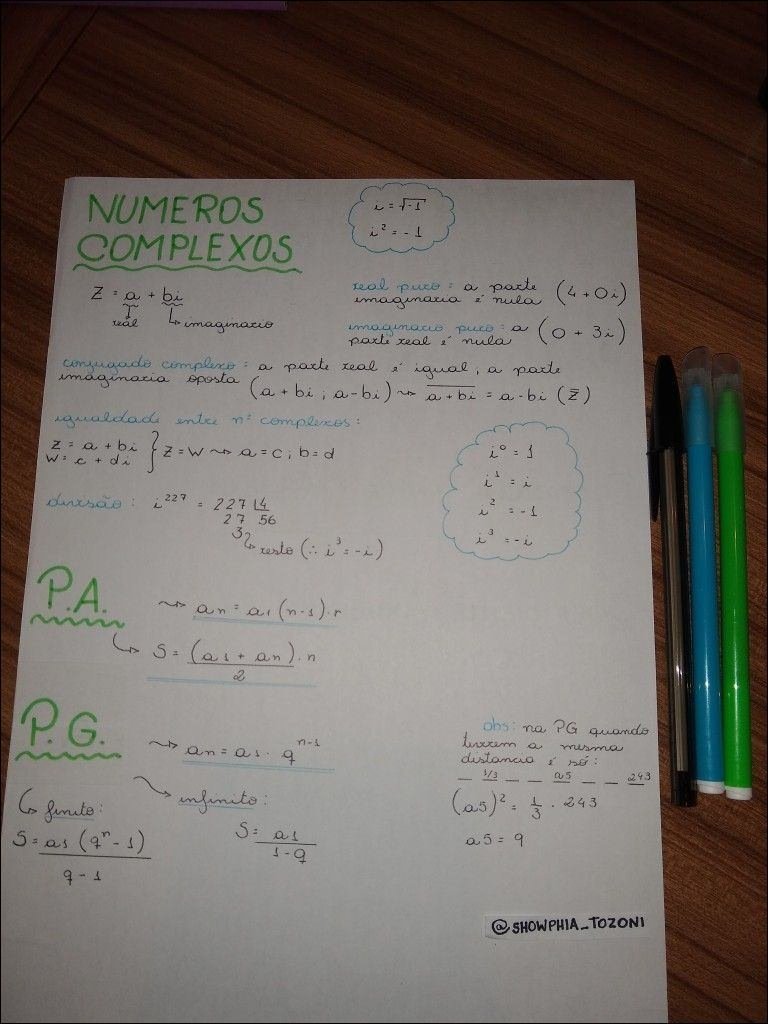 NUMEROS
COMPLEXOS
i = √-1
i² = -1
Z = a + bi
real
imaginario
real puro: a parte
imaginaria é nula (4 + 0i)
imaginario puro: a
parte real é nula (0 + 3i)
conjugado complexo: a parte real é igual, a parte
imaginaria oposta (a + bi ; a - bi) ⤳ a̅ ̅+̅ ̅b̅i̅ = a - bi (z̅)
igualdade entre nº complexos:
Z = a + bi
W = c + di } Z = W ⤳ a = c ; b = d
i⁰ = 1
i¹ = i
i² = -1
i³ = -i
divisão: i²²⁷ = 227 |4
27 56
3
resto (∴ i³ = -i)
P.A.
an = a1 (n-1) . r
S = (a1 + an) . n
2
P.G.
an = a1 . q^(n-1)
finito:
S = a1 (qⁿ - 1)
q - 1
infinito:
S = a1
1 - q
obs: na PG quando
tiverem a mesma
distancia é só:
_ 1/3 _ _ a5 _ _ 243
(a5)² = 1/3 . 243
a5 = 9
@SHOWPHIA_TOZONI